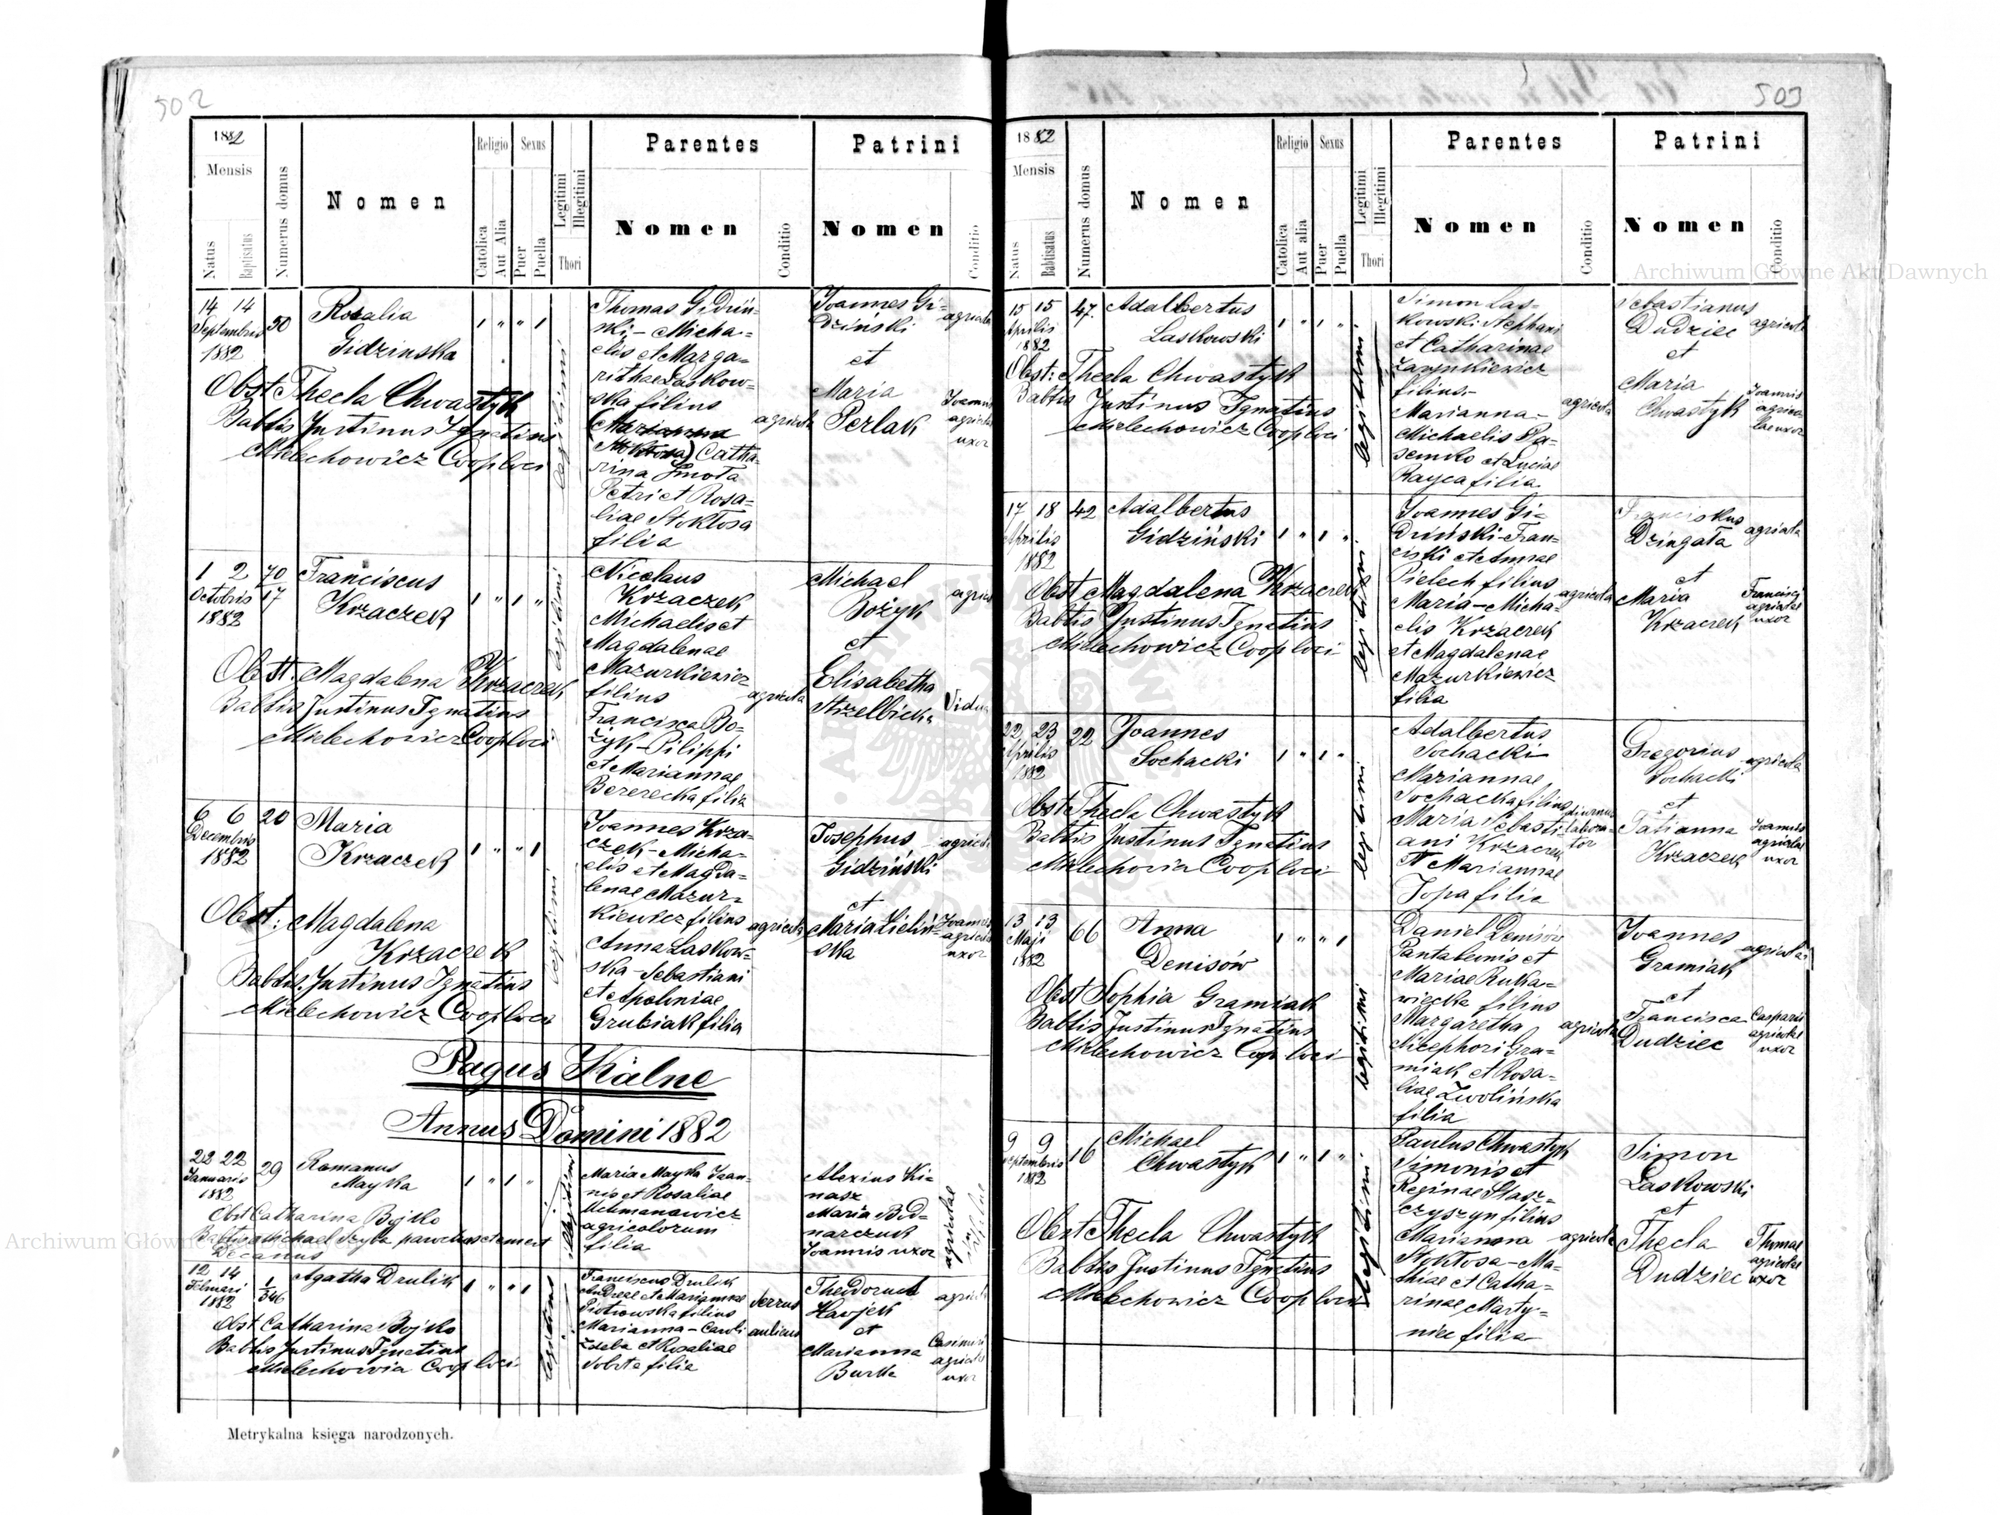 502
1882
Mensis
Natus
Baptisatus
Numerus domus
Nomen
Religio
Catolica
Aut Alia
Sexus
Puer
Puella
Legitimi
Illegitimi
Thori
Parentes
Nomen
Conditio
Patrini
Nomen
Conditio
14 14
Septembris
1882
50
Rozalia
Gidzinska
Obst Thecla Chwastyk
Babtis Justinus Ignatius
Mielechowicz Coop loci
legitimi
Thomas Gidziń-
ski - Micha-
elis et Marga-
rithae Laskow-
ska filius
(Marianna
Stoktosa) Catha-
rina Smota
Petri et Rosa-
liae Stoktosa
filia
agricola
Joannes Gi-
dziński
et
Maria
Perlak
agricola
Joannis
agricolae
uxor
1 2
Octobris
1882
70
17
Franciscus
Krzaczek
Obst: Magdalena Krzaczek
Babtis Justinus Ignatius
Mielechowicz Coop loci
legitimi
Nicolaus
Krzaczek
Michaelis et
Magdalenae
Mazurkiewicz
filius
Francisca Bo-
żyk - Pilippi
et Mariannae
Bererecka filia
agricola
Michael
Bożyk
et
Elisabetha
Strzelbicka
agricola
Vidua
6 6
Decembris
1882
20
Maria
Krzaczek
Obst: Magdalena
Krzaczek
Babtis. Justinus Ignatius
Mielechowicz Coop loci
legitimi
Joannes Krza-
czek - Micha-
elis et Magda-
lenae Mazur-
kiewicz filius
Anna Laskow-
ska - Sebastiani
et Apoloniae
Grubiak filia
agricola
Josephus
Gidziński
et
Maria Zieliń-
ska
agricola
Joannis
agricolae
uxor
Pagus Kalne
Annus Domini 1882
22 22
Januaris
1882
29
Romanus
Mayka
Obst Catharina Bojko
Decanus
illegitimi
Maria Mayka Joan-
nis et Rosaliae
Uchmanowicz
agricolorum
filia
Alexius Ki-
nasz
Maria Bod-
narczuk
Joannis uxor
agricolae
12 14
Februari
1882
1
346
Agatha Drulik
Obst Catharina Bojko
Babtis Justinus Ignatius
Mielechowicz Coop loci
legitimi
Franciscus Drulik
Andreae et Mariannae
Piotrowska filius
Marianna - Caroli
Zdeba et Rosaliae
Sobota filia
servus
aulicus
Theodorus
Havjek
et
Marianna
Burke
agricola
Casimiri
agricolae
uxor
Metrykalna księga narodzonych.
503
1882
Mensis
Natus
Babtisatus
Numerus domus
Nomen
Religio
Catolica
Aut alia
Sexus
Puer
Puella
Legitimi
Illegitimi
Thori
Parentes
Nomen
Conditio
Patrini
Nomen
Conditio
15 15
Aprilis
1882
47.
Adalbertus
Laskowski
Obst: Thecla Chwastyk
Babtis Justinus Ignatius
Mielechowicz Coop loci
legitimi
Simon Las-
kowski Stephani
et Catharinae
filius -
Marianna -
Michaelis Pa-
semko et Luciae
Rayca filia
agricola
Sebastianus
Dudziec
et
Maria
Chwastyk
agricola
Joannis
agrico-
lae uxor
17 18
Aprilis
1882
42
Adalbertus
Gidziński
Obst Magdalena Krzaczek
Babtis Justinus Ignatius
Mielechowicz Coop loci
legitimi
Joannes Gi-
dziński - Fran-
ciski et Annae
Pielech filius
Maria - Micha-
elis Krzaczek
et Magdalenae
Mazurkiewicz
filia
agricola
Franciskus
Dzingała
et
Maria
Krzaczek
agricola
Francisci
agricolae
uxor
22 23
Aprilis
1882
22
Joannes
Sochacki
Obst Thecla Chwastyk
Babtis Justinus Ignatius
Mielechowicz Coop loci
legitimi
Adalbertus
Sochacki
Mariannae
Sochacka filius
Maria Sebasti-
ani Krzaczek
et Mariannae
Topa filia
diurnus
labora-
tor
Gregorius
Sochacki
et
Tatianna
Krzaczek
agricola
Joannis
agricolae
uxor
13 13
Maji
1882
66
Anna
Denisów
Obst Sophia Gramiak
Babtis Justinus Ignatius
Mielechowicz Coop loci
legitimi
Daniel Denisów
Pantaleonis et
Mariae Ruka-
wiecka filius
Margaretha
Nicephori Gra-
miak et Rosa-
liae Zwolińska
filia
agricola
Joannes
Gramiak
et
Francisca
Dudziec
agricola
Caspari
agricolae
uxor
9 9
Septembris
1882
16
Michael
Chwastyk
Obst Thecla Chwastyk
Babtis Justinus Ignatius
Mielechowicz Coop loci
legitimi
Paulus Chwastyk
Simonis et
Reginae Stasz-
czyszyn filius
Marianna
Stoktosa - Ma-
thiae et Catha-
rinae Marty-
niec filia
agricola
Simon
Laskowski
et
Thecla
Dudziec
Thomae
agricolae
uxor
Archiwum Główne Akt Dawnych
Archiwum Główne Akt Dawnych